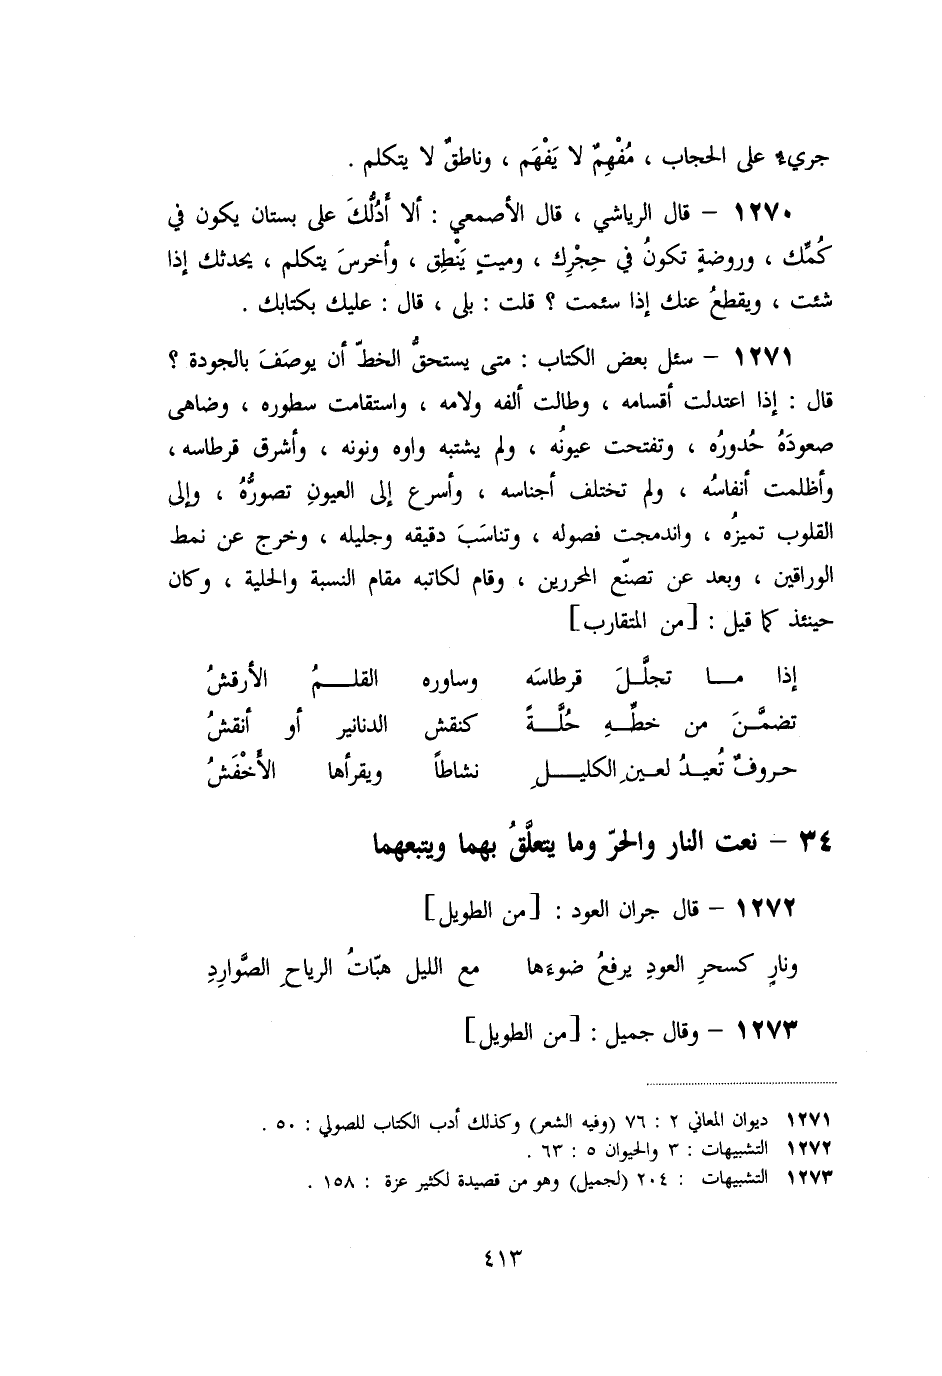 جريء على الحجاب ، مُفْهِمٌ لا يَفْهَم ، وناطقٌ لا يتكلم .
١٢٧٠ – قال الرياشي ، قال الأصمعي : ألا أَدُلُّكَ على بستان يكون في
كُمِّك ، وروضةٍ تكونُ في حِجْرِك ، وميتٍ يَنْطِق ، وأخرسَ يتكلم ، يحدثك إذا
شئت ، ويقطعُ عنك إذا سئمت ؟ قلت : بلى ، قال : عليك بكتابك .
١٢٧١ – سئل بعض الكتاب : متى يستحقُّ الخطّ أن يوصَفَ بالجودة ؟
قال : إذا اعتدلت أقسامه ، وطالت ألفه ولامه ، واستقامت سطوره ، وضاهى
صعودَهُ حُدورُه ، وتفتحت عيونُه ، ولم يشتبه واوه ونونه ، وأشرق قرطاسه ،
وأظلمت أنفاسُه ، ولم تختلف أجناسه ، وأسرع إلى العيونِ تصورُّهُ ، وإلى
القلوب تميزُه ، واندمجت فصوله ، وتناسَبَ دقيقه وجليله ، وخرج عن نمط
الوراقين ، وبعد عن تصنّع المحررين ، وقام لكاتبه مقام النسبة والحلية ، وكان
حينئذ كما قيل : [من المتقارب]
إذا مــا تجلَّـلَ قرطاسَه وساوره القلــمُ الأرقشُ
تضمَّـنَ من خطِّــهِ حُلَّــةً كنقش الدنانير أو أنقشُ
حروفٌ تُعيـدُ لعـينِ الكليــلِ نشاطاً ويقرأها الأَخْفَشُ
٣٤ – نعت النار والحرّ وما يتعلَّقُ بهما ويتبعهما
١٢٧٢ – قال جران العود : [من الطويل]
ونارٍ كسحرِ العودِ يرفعُ ضوءَها مع الليل هبّاتُ الرياحِ الصَّوارِدِ
١٢٧٣ – وقال جميل : [من الطويل]
١٢٧١ ديوان المعاني ٢ : ٧٦ (وفيه الشعر) وكذلك أدب الكتاب للصولي : ٥٠ .
١٢٧٢ التشبيهات : ٣ والحيوان ٥ : ٦٣ .
١٢٧٣ التشبيهات : ٢٠٤ (لجميل) وهو من قصيدة لكثير عزة : ١٥٨ .
٤١٣